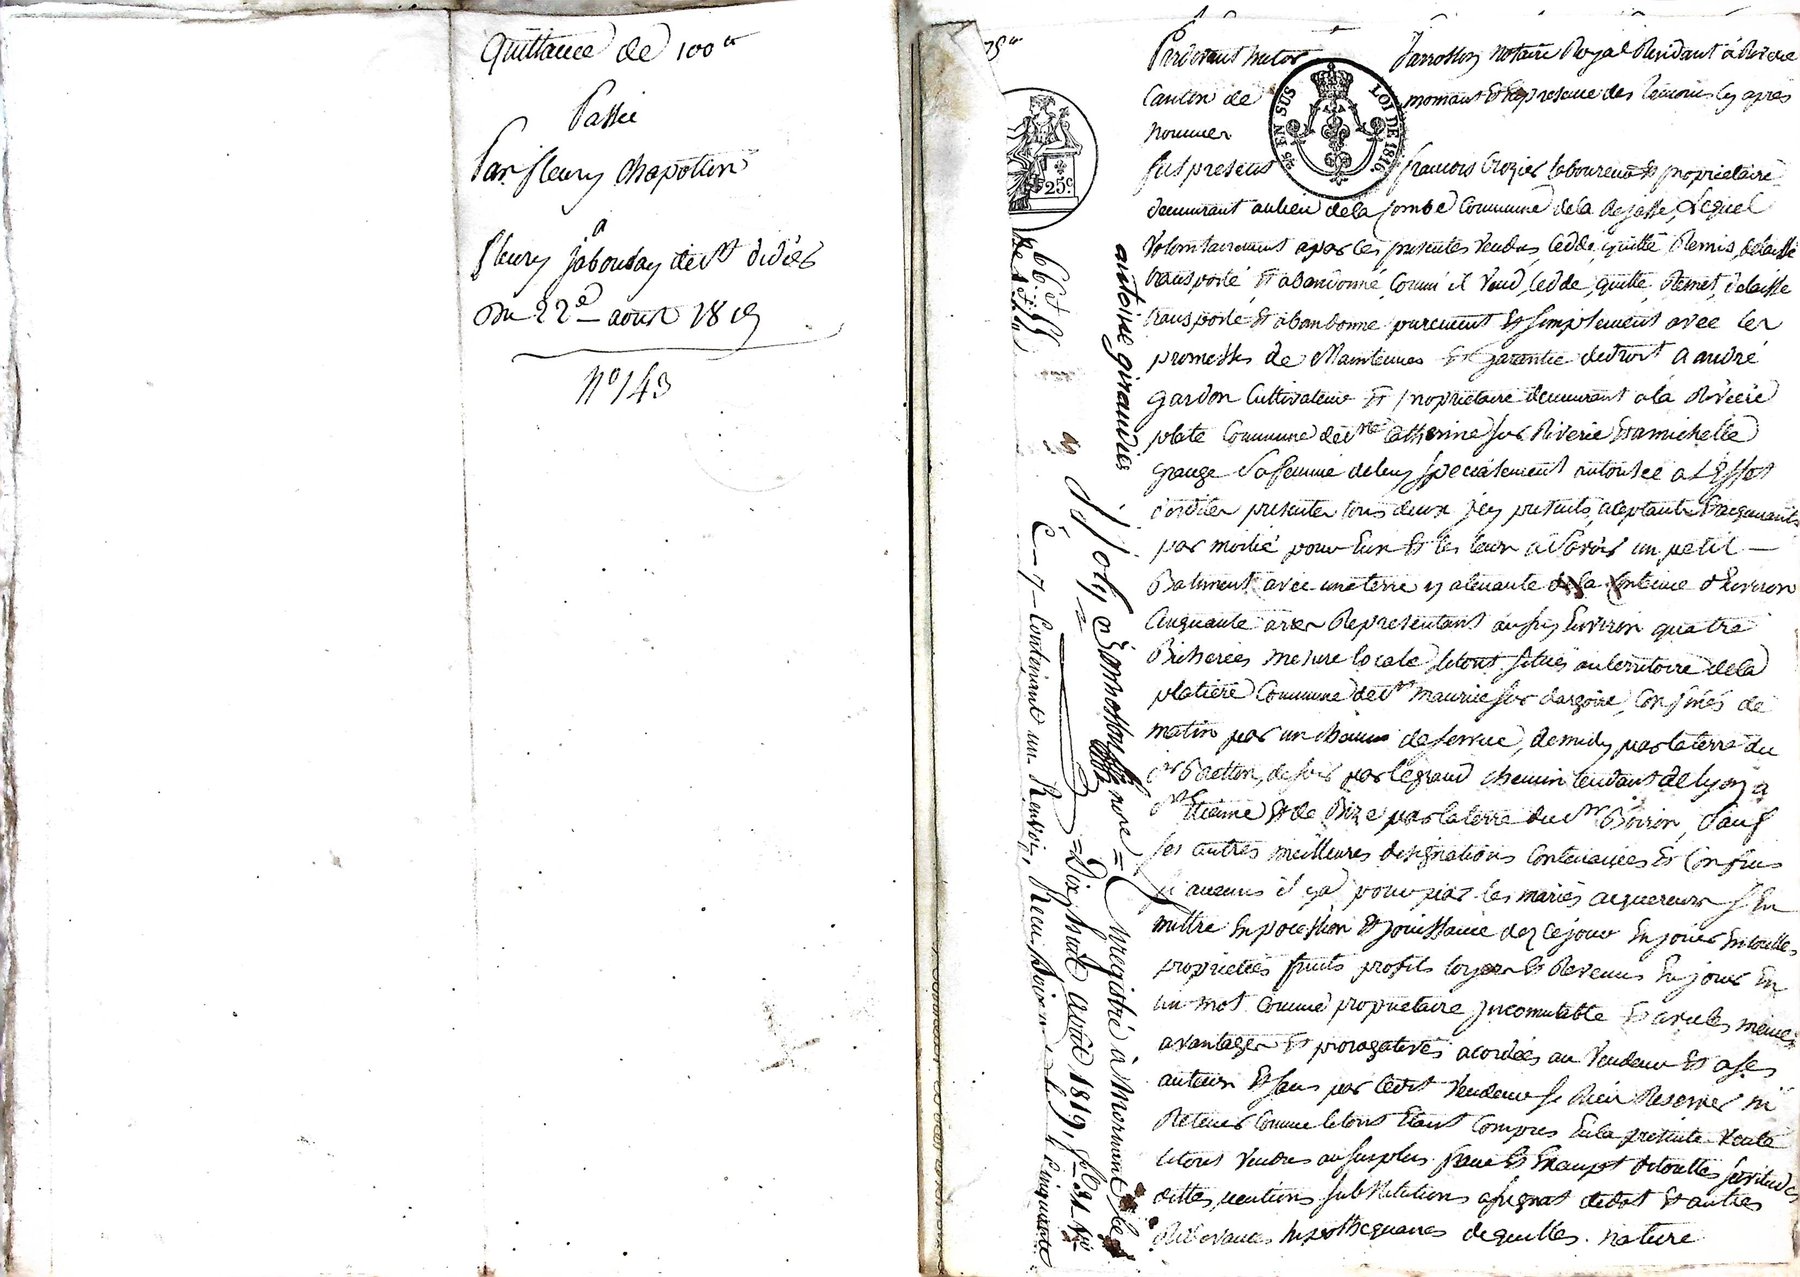 Quittance de 100 tt
Passée
Par fleury chapotton
a
fleury jabouley de St didier
Du 22e aoust 1819
n° 143
25c
25 EN SUS LOI DE 1816
Pardevant maitre Jarrosson notaire Royal Residant à Riverie
Canton de mornant Et En presence des temoins cy apres
nommer
fut present francois Crozier laboureur Et proprietaire
demeurant au lieu de la Combe Commune de la Rajasse, Lequel
Volontairement a par ces presentes Vendus, Cedde, quitté Remis, delaissé
transporté Et abandonné, Comm'il Vend, Cedde, quitte, Remet, delaisse
transporte Et abandonne purement Et simplement avec les
promesses de Maintenues Et garantie de droit a andré
gardon Cultivateur Et proprietaire demeurant a la
plate Commune de Ste Catherine sur Riverie Et a michelle
grange sa femme de luy specialement autorisée a L'Effet
des presentes tous deux icy presents, aceptants Et acquerants
par moitié pour Eux Et les leurs a Savoir un petit
Batiment avec une terre y atenante de la Contenue d'Environ
Cinquante ares Representant aussy Environ quatre
Bicherées mesure locale le tout situé au territoire de la
platiere Commune de St maurice sur dargoire, Confinés de
matin par un chemin de servue, de midy par la terre du
sr de soir par le grand chemin tendant de lyon a
St Etienne Et de Bize par la terre du Sr Boiron, Sauf
ses autres meilleures designations Contenances Et Confins
si aucuns il y a pour par les mariés acquereurs s'En
mettre En possession Et jouissance dez ce jour En jouir En toutes
proprietées fruits profits loyers Et Revenus En jouir En
un mot Comme proprietaire jncomutable Et avec les memes
avantages Et prerogatives acordées au Vendeur Et a ses
auteurs Et sans par ledit Vendeur se Rien Reserver ni
Retenir Comme le tout Etant Compris En la presente Vente
le tout Vendus au surplus franc Et Exempt de toutes servitudes
dettes, pentions substitutions assignat de dot Et autres
Redevances hypothequaires de quelles nature
antoine giraudier
Joly Jarrosson nore = Enregistré à Mornant le
= Dix huit avril 1819, f° 31 V°
C 7 Contenant un Renvoi, Reçu, Soixante